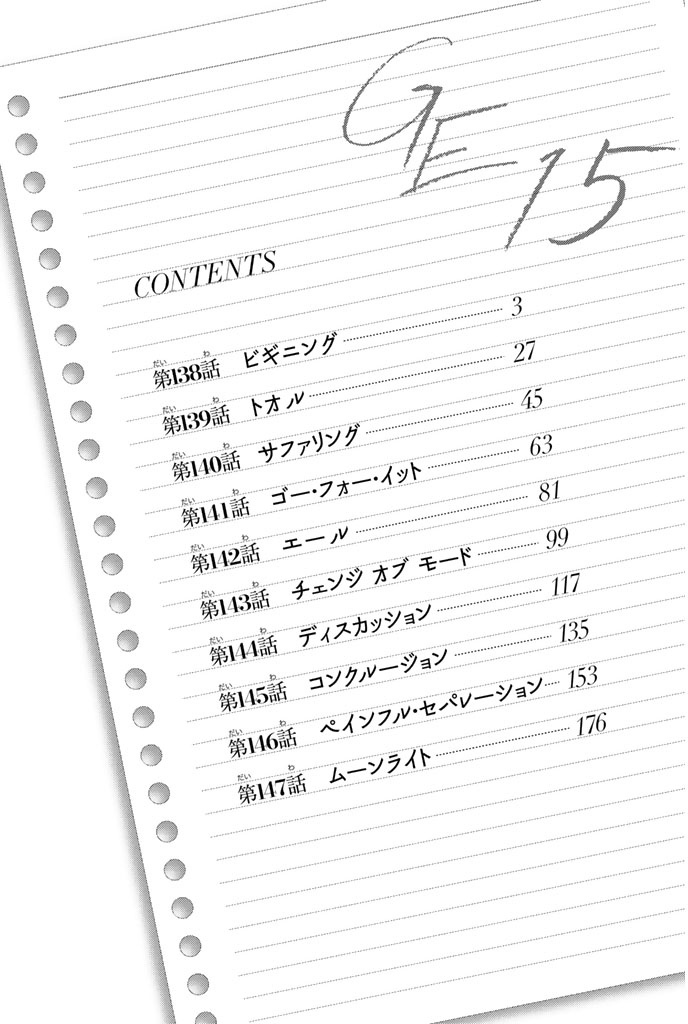 GE
15
CONTENTS
第138話 ビギニング 3
第139話 トオル 27
第140話 サファリング 45
第141話 ゴー・フォー・イット 63
第142話 エール 81
第143話 チェンジ オブ モード 99
第144話 ディスカッション 117
第145話 コンクルージョン 135
第146話 ペインフル・セパレーション 153
第147話 ムーンライト 176